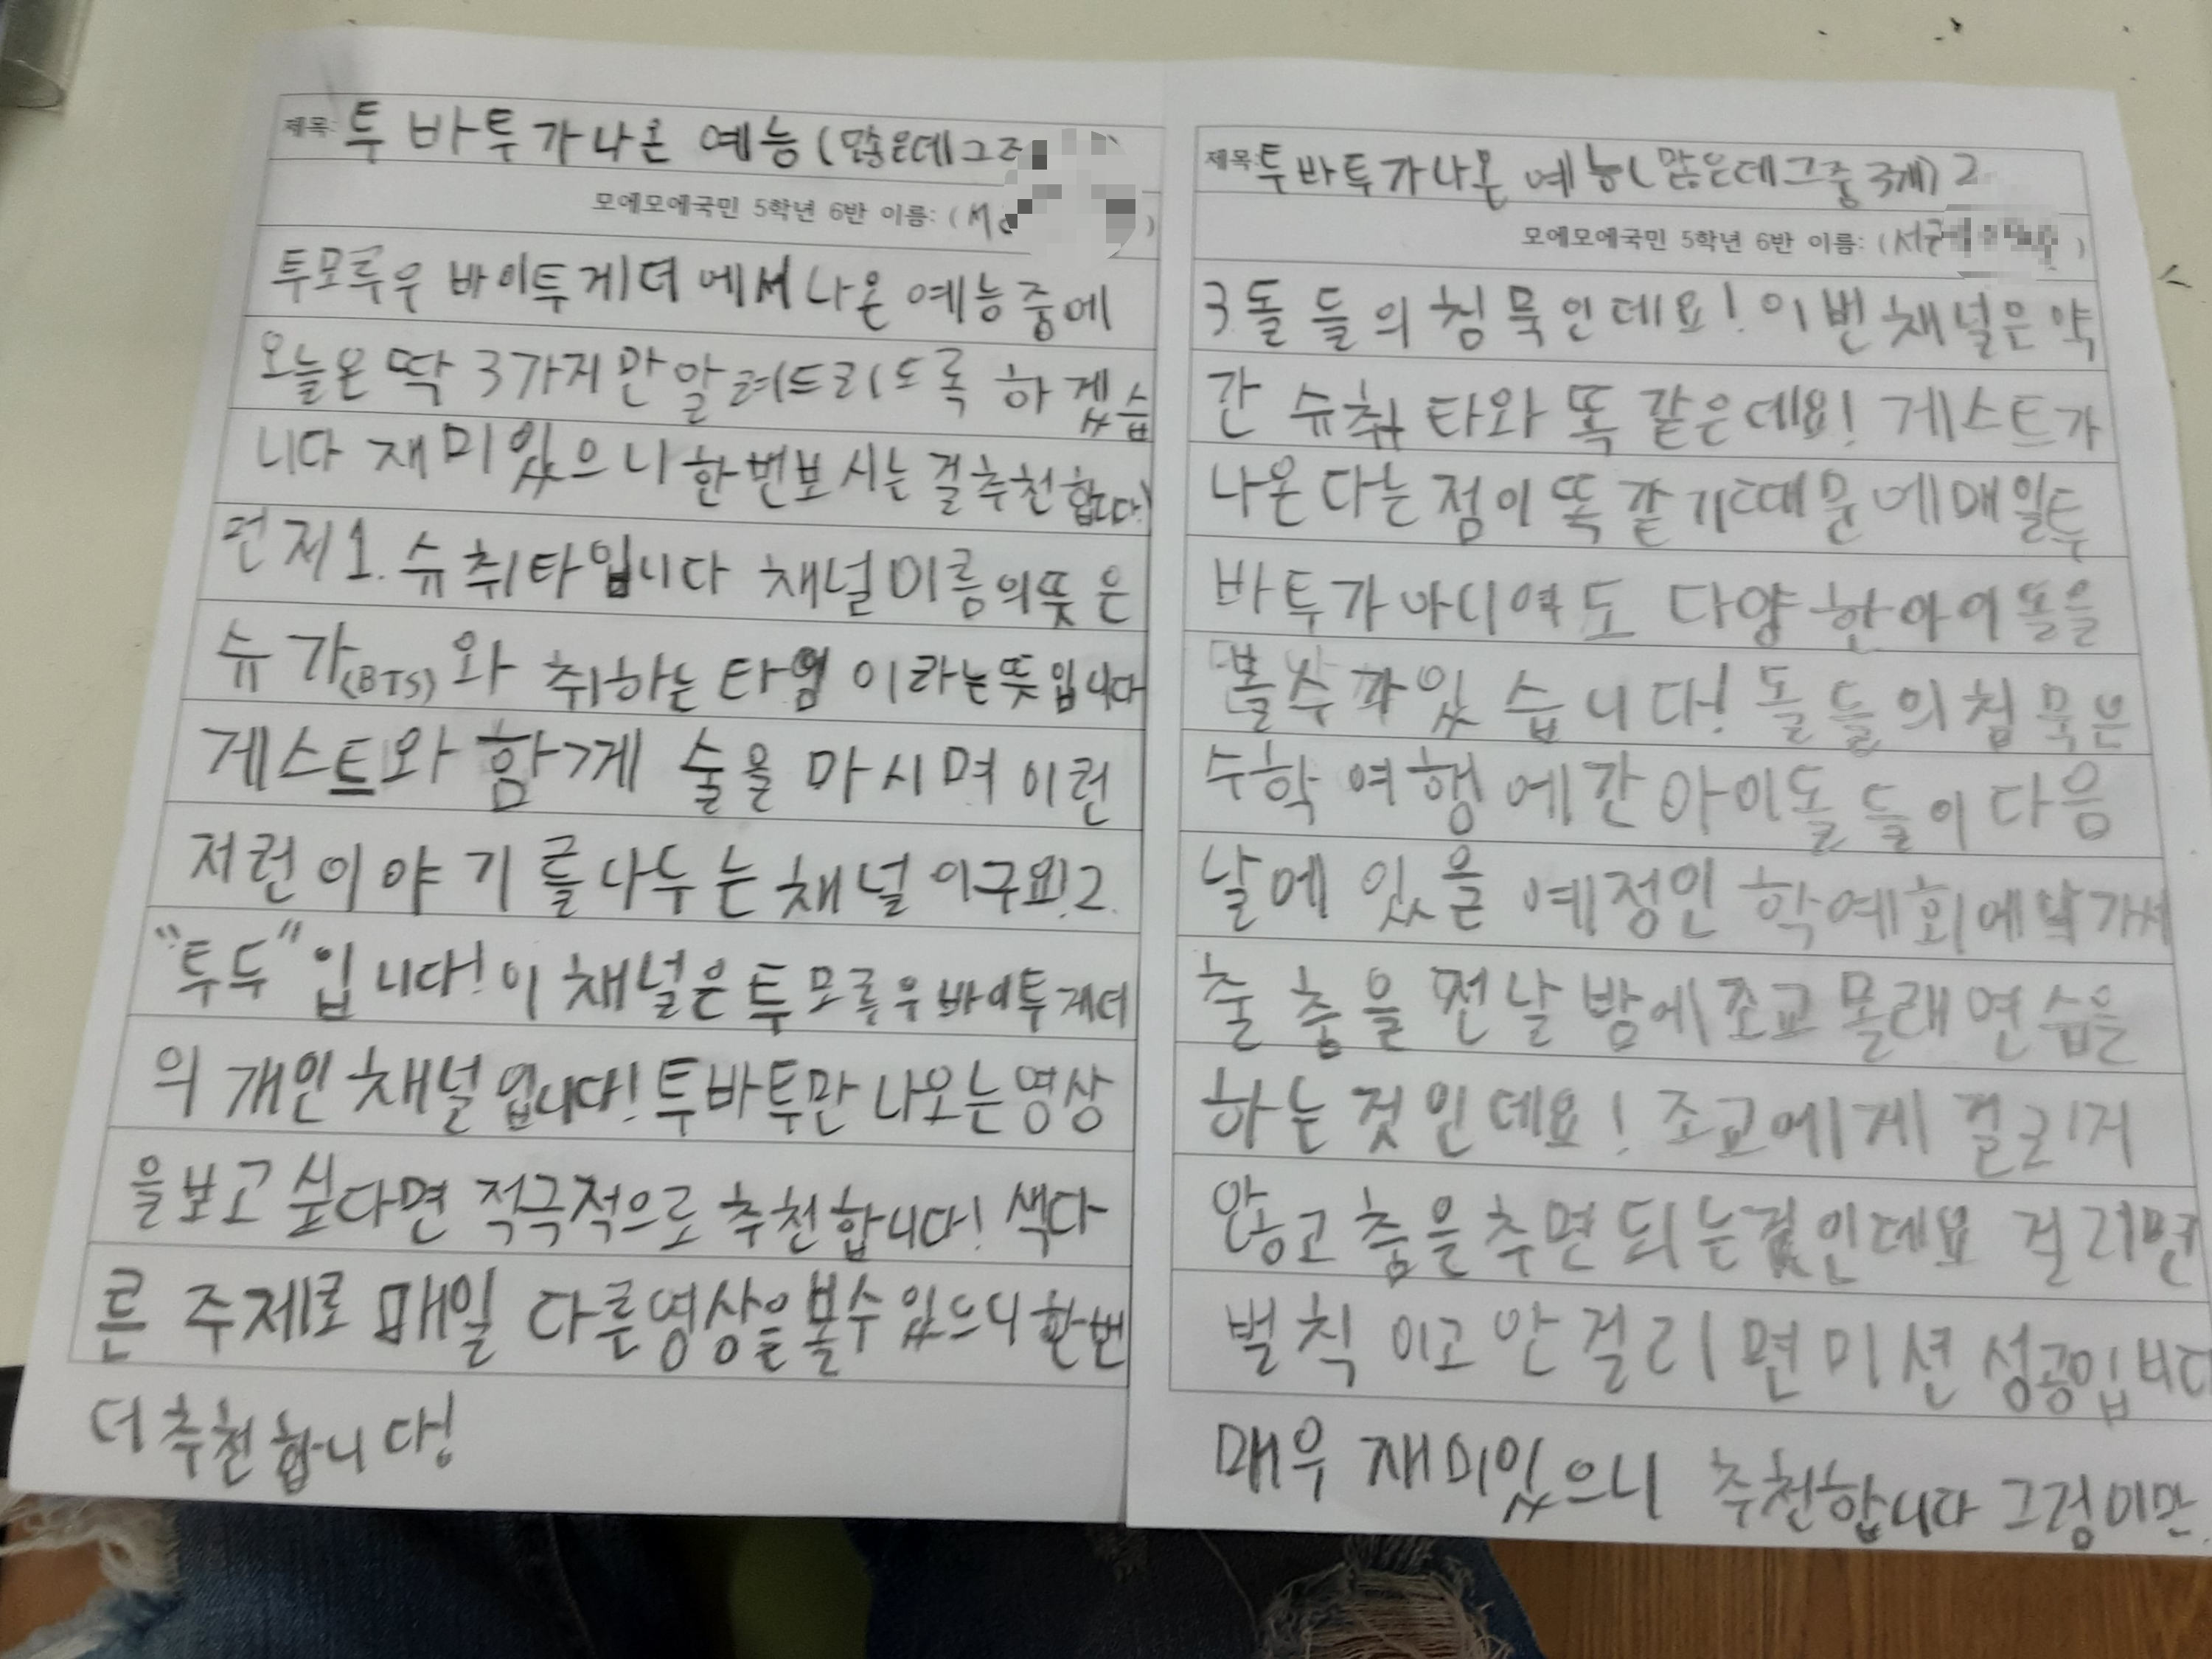 제목: 투바투가나온 예능(많은데그중
모에모에국민 5학년 6반 이름: (서
투모로우 바이투게더 에서 나온 예능중에
오늘은 딱 3가지만알려드리도록 하겠습
니다 재미있으니한번보시는걸추천합니다!
먼저 1. 슈취타입니다 채널이름의뜻은
슈가(BTS)와 취하는 타임 이라는뜻입니다
게스트와 함께 술을 마시며 이런
저런 이야기를나누는 채널이구요! 2.
“투두”입니다! 이 채널은 투모로우바이투게더
의 개인채널입니다! 투바투만 나오는영상
을보고 싶다면 적극적으로 추천합니다! 색다
른 주제로 매일 다른영상을볼수있으니한번
더 추천합니다!
제목: 투바투가나온 예능(많은데그중 3개) 2
모에모에국민 5학년 6반 이름: (서 )
3. 돌들의 침묵인데요! 이번채널은 약
간 슈취타와 똑같은데요! 게스트가
나온다는 점이 똑같기때문에매일투
바투가아니여도 다양한아이돌을
볼수가있습니다! 돌들의침묵은
수학여행에간아이돌들이다음
날에 있을 예정인 학예회에 나가서
출 춤을 전날 밤에조교 몰래연습을
하는 것인데요! 조교에게 걸리지
않고 춤을추면되는것인데요 걸리면
벌칙 이고 안걸리면미션 성공입니다
매우 재미있으니 추천합니다 그럼이만